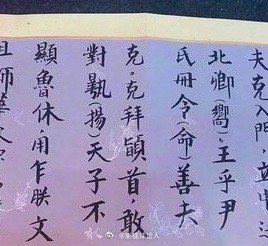 夫克入門,立中
北卿(嚮)。王乎尹
氏冊令(命)善夫
克。克拜䭫首,敢
對(揚)天子不
顯魯休,用乍朕文
祖師華父